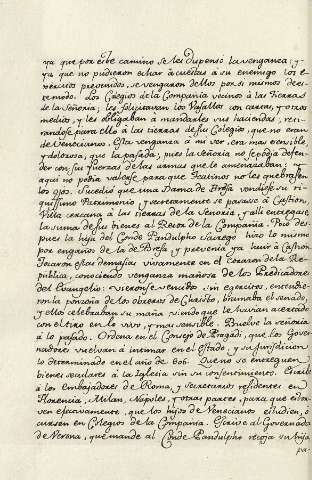 ya que por este camino se les dispuso la venganza, y
ya que no pudieron echar à cuestas à su enemigo los e-
xercitos prevenidos, se vengaron dellos por si mismos deste
modo. Los Colegios de la Compañia vecinos à las tierras
de la Señoria; les solicitavan los Vasallos con cartas, y otros
medios, y les obligaban à mandarles sus haciendas, reti-
randose para ello à las tierras de sus Colegios, que no eran
de Venecianos. Esta venganza à mi ver, era mas sensible,
y dolorosa, que la pasada; pues la señoria no se podia defen-
der con sus fuerzas de las armas que le amenazaban; y
aqui no podia valerse para que Teatinos no les quebrasen
los ojos. Sucediò que una Dama de Bresa vendiese su ri-
quissimo Patrimonio, y secretamente se pasase à Castion,
Villa cercana à las tierras de la Señoria, y alli entregase
la suma de sus bienes al Retor de la Compañia. Poco des-
pues la hija del Conde Pandulpho Lavego hizo lo mismo
por engaños de la de Bresa, y prevenia ya huir à Castion
Tocaron estas demasias vivamente en el corazon de la Re-
publica, conociendo venganza mañosa de los Predicadores
del Evangelio: vieronse vencidos sin exercitos, entendie-
ron la ponzoña de los obreros de Christo, bramaba el senado,
y ellos celebraban su maña, viendo que le havian acertado
con el tiro en lo vivo, y mas sensible. Buelve la señoria
à lo pasado. Ordena en el Consejo de Pragadi, que los Gover-
nadores vuelvan à intimar en el Estado, y su Jurisdicion
lo determinado en el año de 606. Que no se entreguen
bienes seculares à la Iglesia sin su consentimiento. Escribe
à los Embajadores de Roma, y Secretarios residentes en
Florencia, Milan, Napoles, y otras partes, para que estor-
ven efectivamente, que los hijos de Venecianos estudien, ò
cursen en Colegios de la Compañia. Escrive al Governador
de Verona, que mande al Conde Pandulpho recoja su hija
pa-